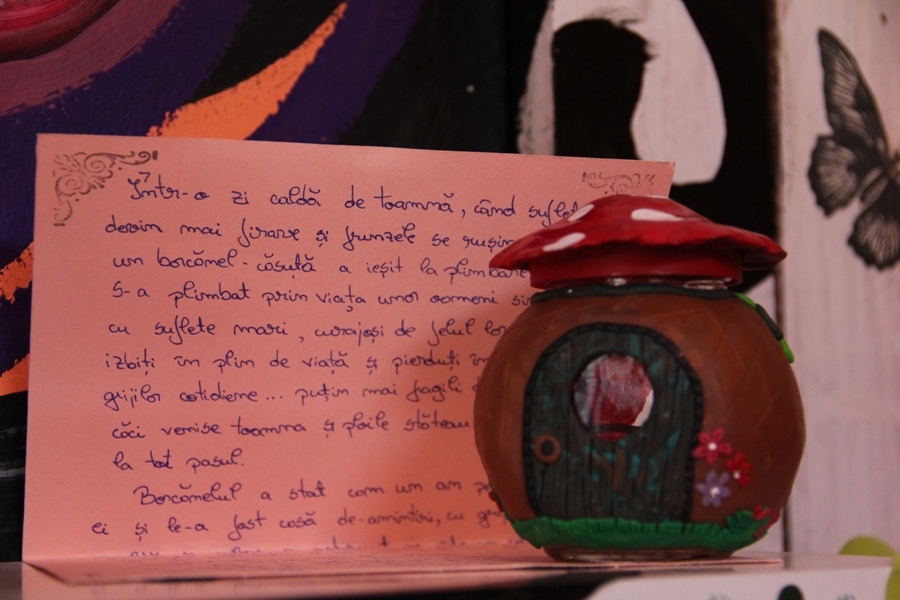 Într-o zi caldă de toamnă, când
devin mai firave și frunzele se
un borcănel-căsuță a ieșit la plimbare
S-a plimbat prin viața unor oameni
cu suflete mari, curajoși de felul
izbiți în plin de viață și pierduți
grijilor cotidiene... puțin mai fragili
căci venise toamna și ploile stăteau
la tot pasul.
Borcănelul a stat cam un an
ei și le-a fost casă de-amintiri, cu